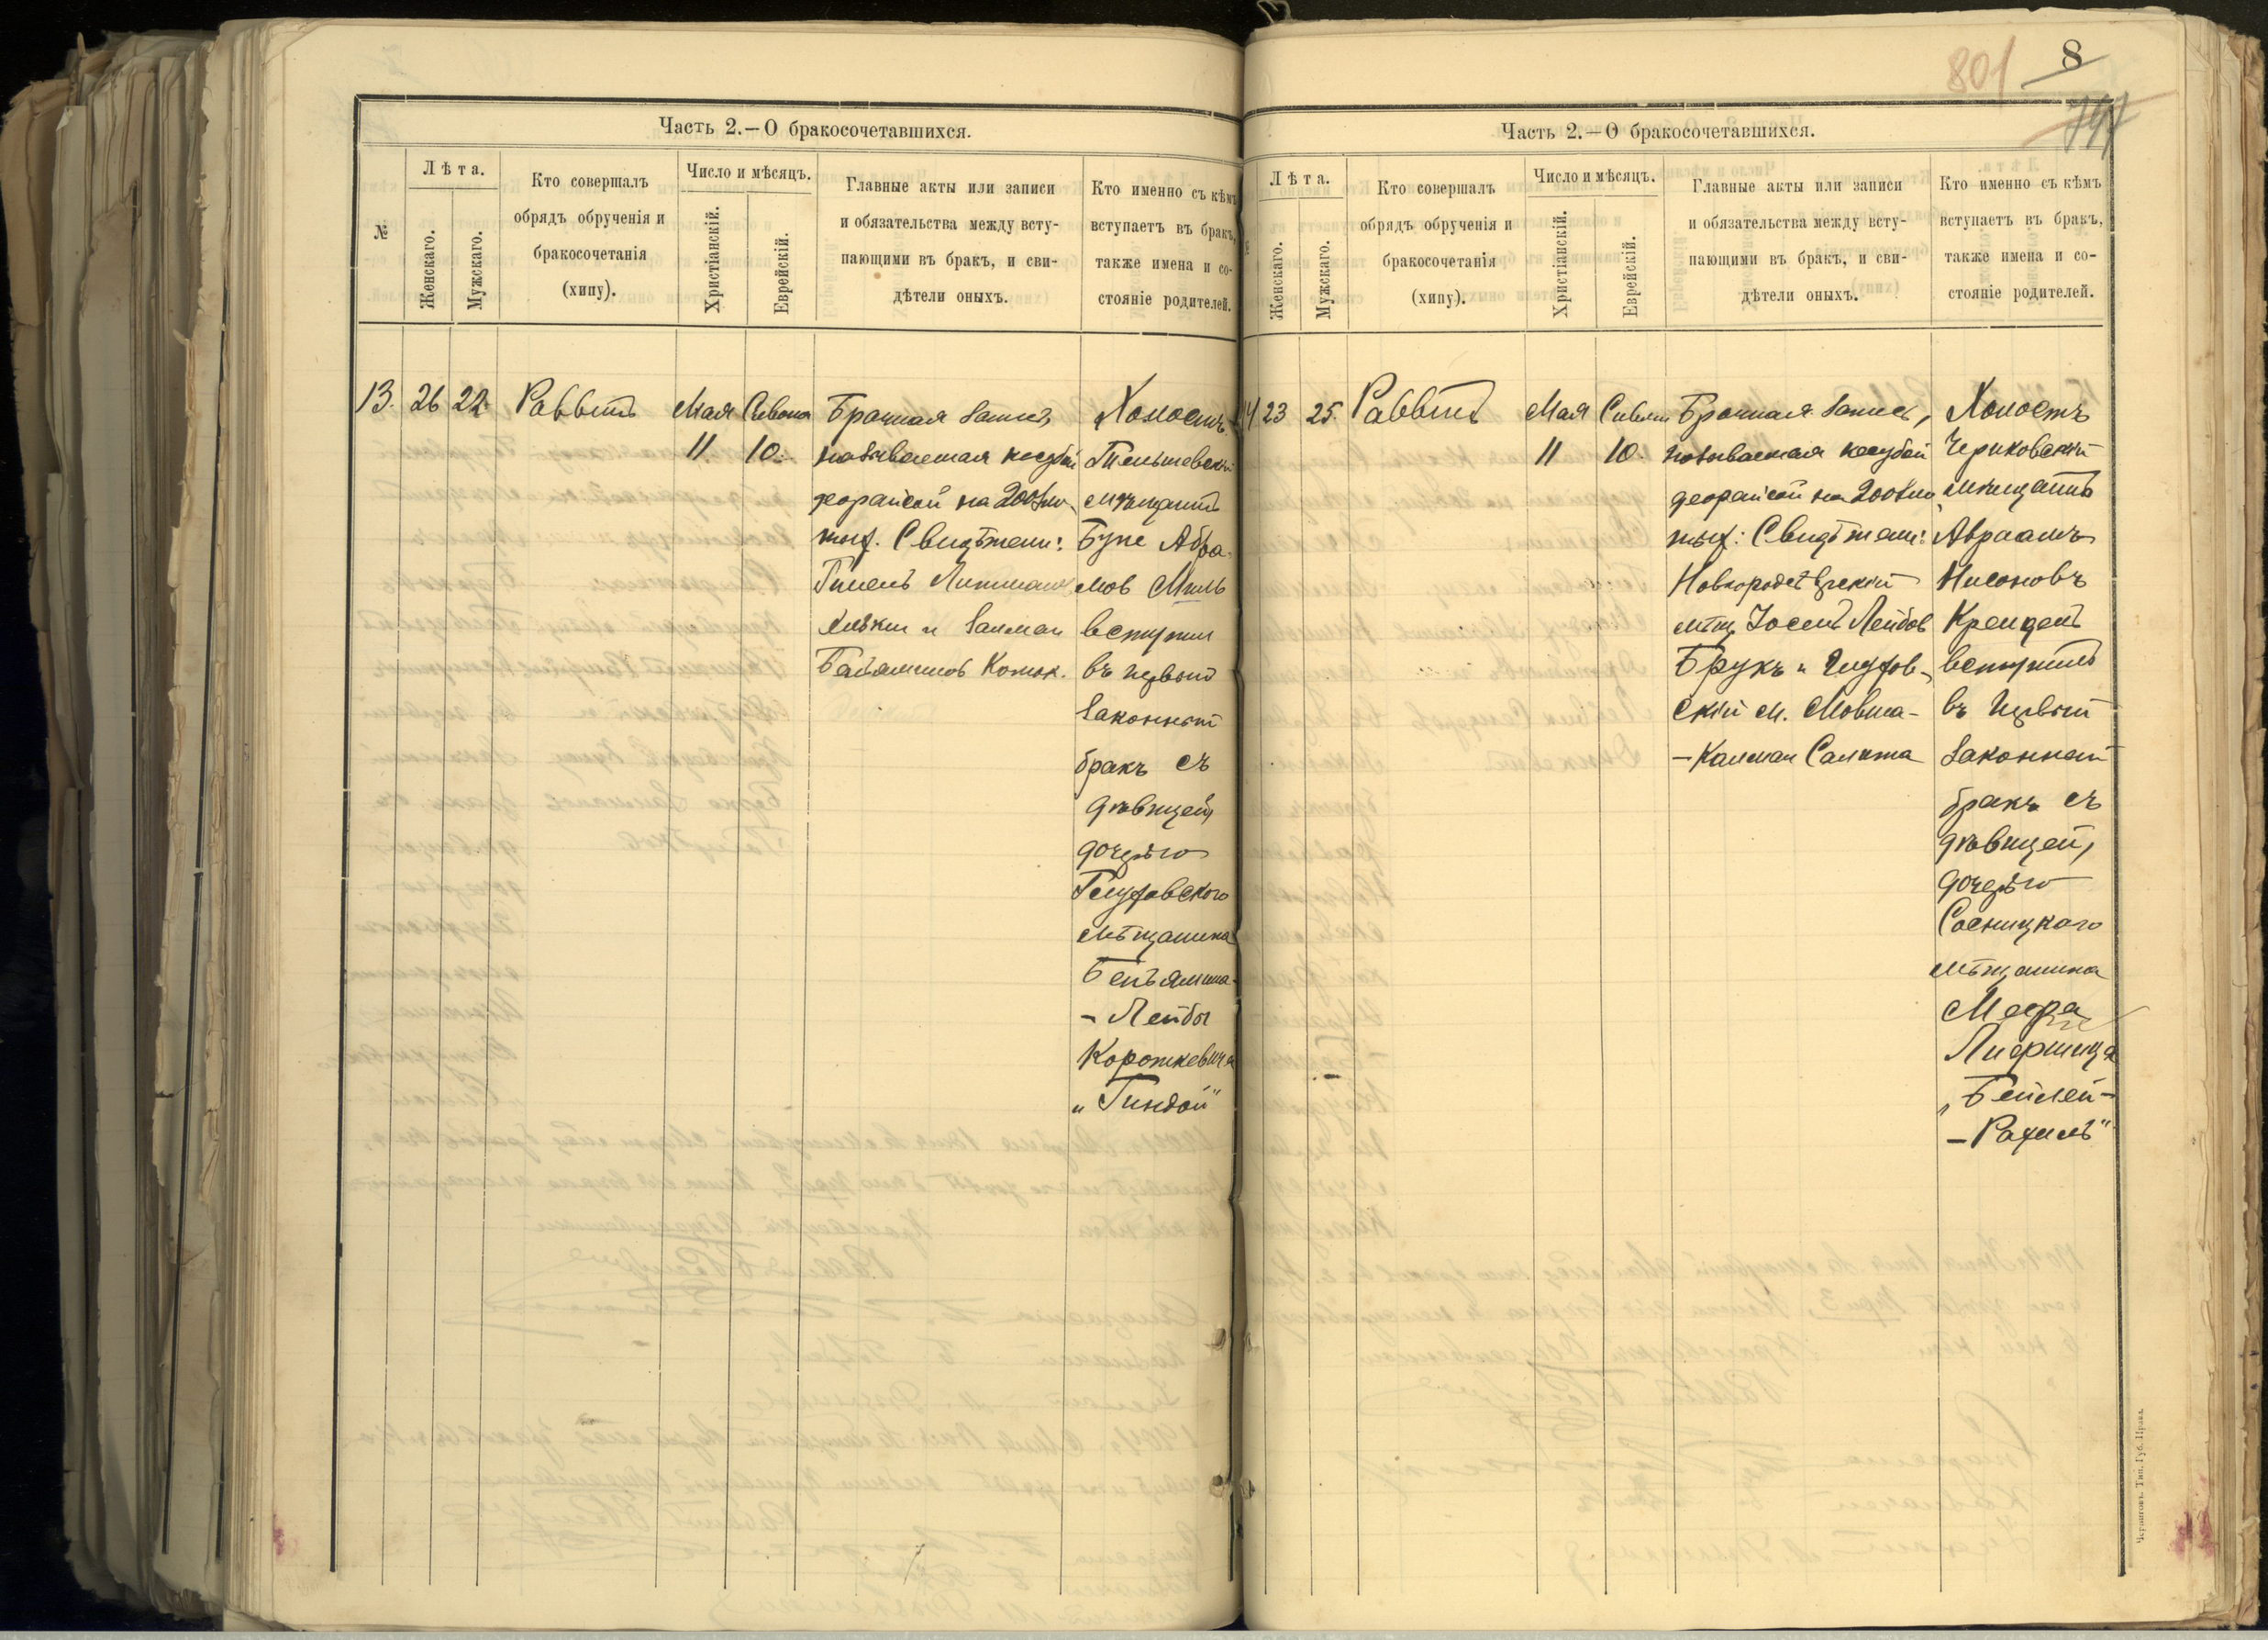 8
801
797
Часть 2.—О бракосочетавшихся.
№
Лѣта.
Женскаго.
Мужскаго.
Кто совершалъ
обрядъ обрученія и
бракосочетанія
(хипу).
Число и мѣсяцъ.
Христіанскій.
Еврейскій.
Главные акты или записи
и обязательства между всту-
пающими въ бракъ, и сви-
дѣтели оныхъ.
Кто именно съ кѣмъ
вступаетъ въ бракъ,
также имена и со-
стояніе родителей.
13.
26
22
Раввинъ
Мая
11
Сивона
10.
Брачная запись,
называемая кесубой
деорайсой на 200 зло-
тых. Свидѣтели:
и Залман
Холостъ
Тельшевскій
мѣщанинъ
Абра-
мов
вступил
въ первый
законный
бракъ съ
дѣвицей,
дочерью
Глуховскаго
мѣщанина
Беньямина-
- Лейбы
Короткевича
„Гиндой"
Часть 2.—О бракосочетавшихся.
Лѣта.
Женскаго.
Мужскаго.
Кто совершалъ
обрядъ обрученія и
бракосочетанія
(хипу).
Число и мѣсяцъ.
Христіанскій.
Еврейскій.
Главные акты или записи
и обязательства между всту-
пающими въ бракъ, и сви-
дѣтели оныхъ.
Кто именно съ кѣмъ
вступаетъ въ бракъ,
также имена и со-
стояніе родителей.
14
23
25.
Раввинъ
Мая
11
Сивана
10.
Брачная запись,
называемая кесубой
деорайсой на 200 зло-
тых: Свидѣтели:
мѣщ. Іосель Лейбов
Брукъ и Глухов-
скій м. Мовша-
-Калман
Холостъ
Чериковскій
мѣщанинъ
Авраамъ
Нисоновъ
Крендель
вступилъ
въ первый
законный
бракъ съ
дѣвицей,
дочерью
Сосницкаго
мѣщанина
Меера
„Бейлей-
-Рахиль"
Черниговъ. Тип. Губ. Правл.